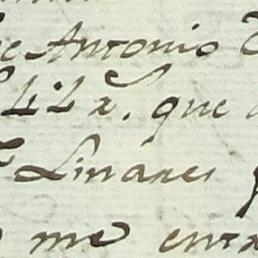 e Antonio
que
Linares
me entr